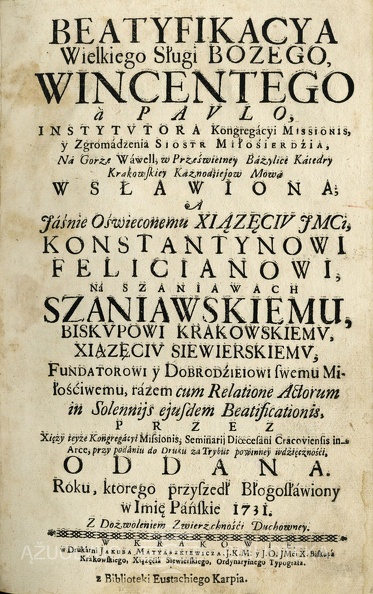 BEATYFIKACYA
Wielkiego Sługi BOZEGO,
WINCENTEGO
à PAVLO,
INSTYTVTORA Kongregácyi MISSIONIS,
y Zgromádzenia SIOSTR MIŁOSIERDZIA,
Ná Gorze Wáwell, w Prześwietney Bázylice Kátedry
Krakowskiey Káznodźieyow Mową
WSŁAWIONA;
A
Jáśnie Oświeconemu XIĄZĘCIV JMCi,
KONSTANTYNOWI
FELICIANOWI,
Ná SZANIAWACH
SZANIAWSKIEMU,
BISKVPOWI KRAKOWSKIEMV,
XIĄZĘCIV SIEWIERSKIEMV,
FUNDATOROWI y DOBRODZIEIOWI swemu Mi-
łośćiwemu, rázem cum Relatione Actorum
in Solennijs ejusdem Beatificationis,
PRZEZ
Xięży teyże Kongregácyi Missionis, Seminarij Diœcesáni Cracoviensis in
Arce, przy podániu do Druku zá Trybut powinney wdźięcznośći,
ODDANA.
Roku, ktorego przyszedł Błogosłáwiony
w Imię Páńskie 1731.
Z Dozwoleniem Zwierzchnośći Duchowney.
W KRAKOWIE,
w Drukárni JAKUBA MATYASZKIEWICZA, J.K.M. y J.O. JMCi X. Biskupa
Krákowskiego, Xiążęćia Siewierskiego, Ordynaryinego Typografa.
z Biblioteki Eustachiego Karpia.